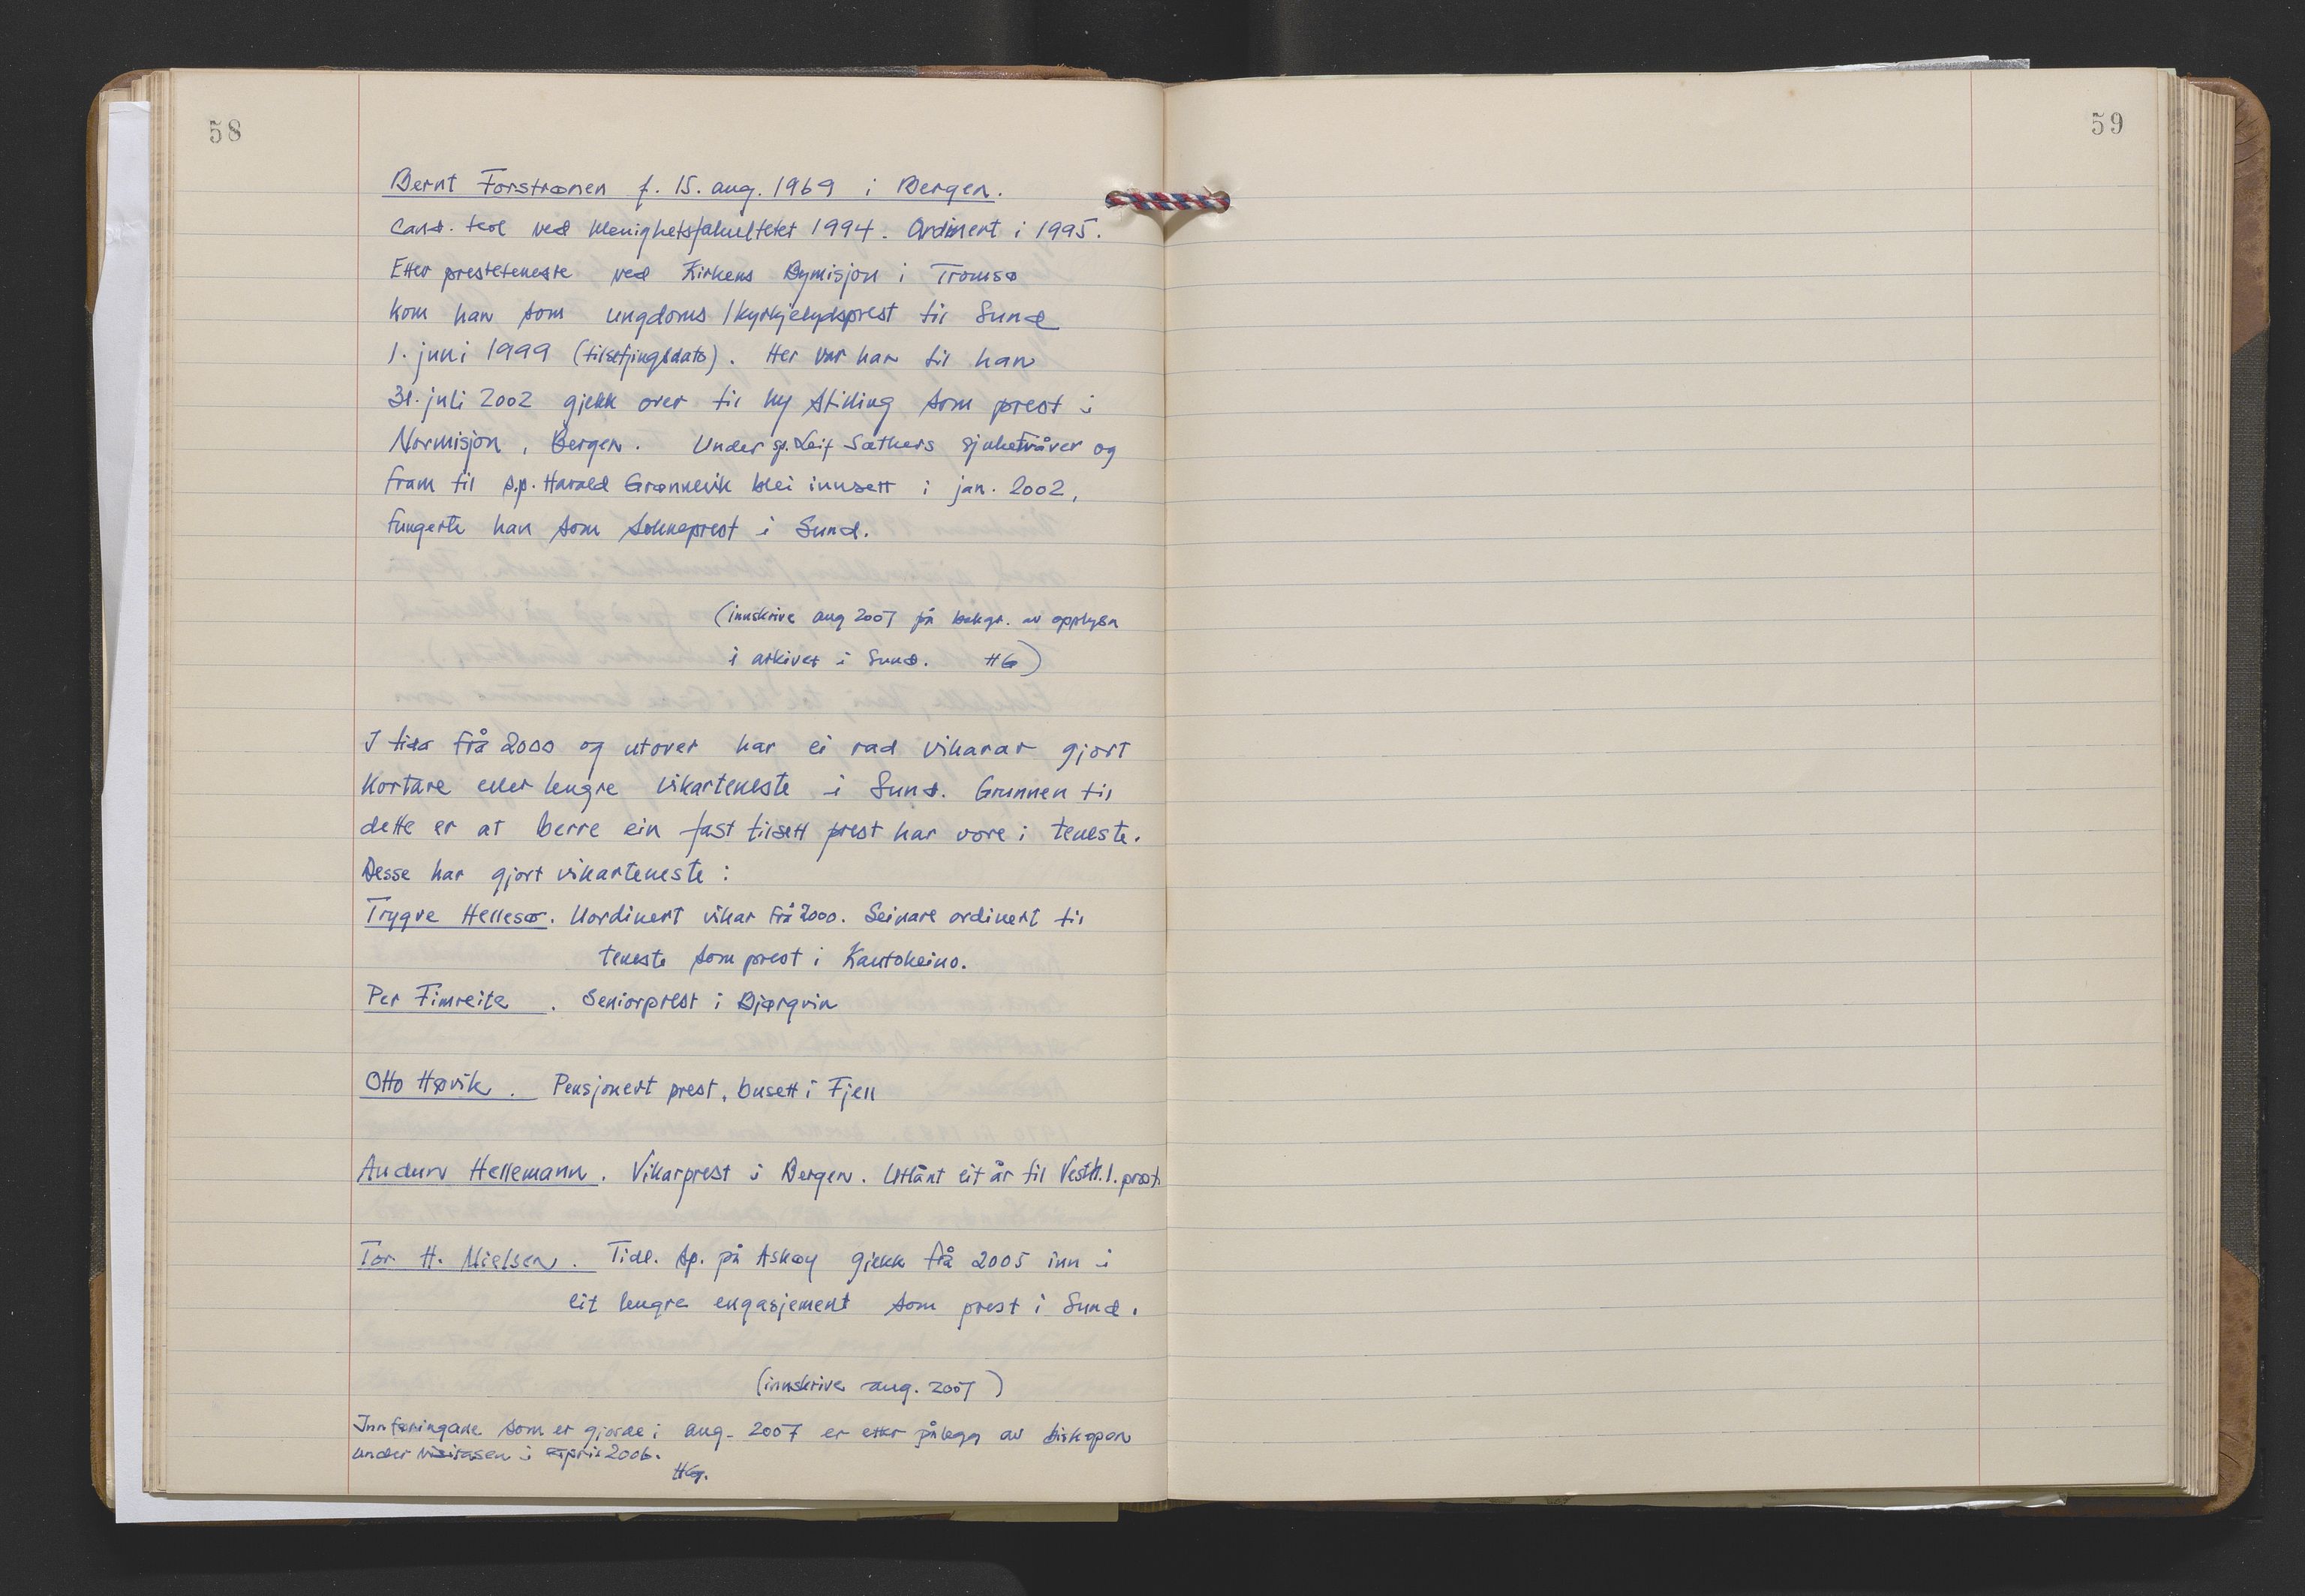 58
59
Bernt Forstrønen f. 15. aug. 1969 i Bergen.
Cand. teol ved Menighetsfakultetet 1994. Ordinert i 1995.
Etter presteteneste ved Kirkens Bymisjon i Tromsø
kom han som ungdoms/kyrkjelydsprest til Sund
1. juni 1999 (tilsetjingsdato). Her var han til han
31. juli 2002 gjekk over til ny stilling som prest i
Normisjon, Bergen. Under sp. Leif Sæthers sjukefråver og
fram til s.p. Harald Grønnevik blei innsett i jan. 2002,
fungerte han som sokneprest i Sund.
(innskrive aug 2007 på bakgr. av opplysn
i arkivet i Sund. HG)
I tida frå 2000 og utover har ei rad vikarar gjort
kortare eller lengre vikarteneste i Sund. Grunnen til
dette er at berre ein fast tilsett prest har vore i teneste.
Desse har gjort vikarteneste:
Trygve Hellesø. Uordinert vikar frå 2000. Seinare ordinert til
teneste som prest i Kautokeino.
Per Fimreite. Seniorprest i Bjørgvin
Otto Høvik. Pensjonert prest, busett i Fjell
Audun Hellemann. Vikarprest i Bergen. Utlånt eit år til Vesth.l. prosti.
Tor H. Nielsen. Tidl. sp. på Askøy gjekk frå 2005 inn i
eit lengre engasjement som prest i Sund.
(innskrive aug. 2007)
Innføringane som er gjorde i aug. 2007 er etter pålegg av biskopen
under visitasen i april 2006.
HG.